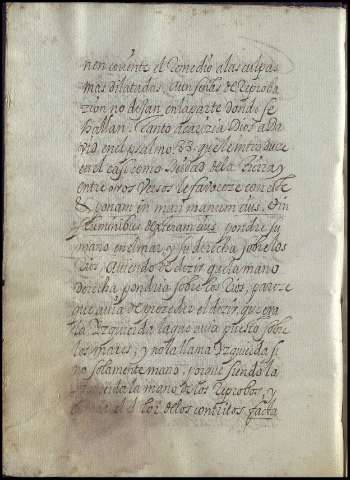 nen corriente el remedio a las culpas
mas dilatadas, aun señas de Reproba
zion no dejan en la parte donde se
hallan. Tanto acarizia Dios a Da
vid en el psalmo. 88. que le introduce
en el casi como Deidad de la tierra, y
entre otros versos le favoreze con este
Et ponam in mari manum eius, & in
fluminibus dexteram eius, pondre su
mano en el mar, y su derecha sobre los
Rios, Auiendo de dezir que la mano
derecha pondria sobre los Rios, pareze
que auia de preceder el dezir, que era
la Yzquierda la que auia puesto sobre
los mares; y no la llama Yzquierda si
no solamente mano, porque siendo la
la mano de los Reprobos, y
el d lor de los contritos, falta